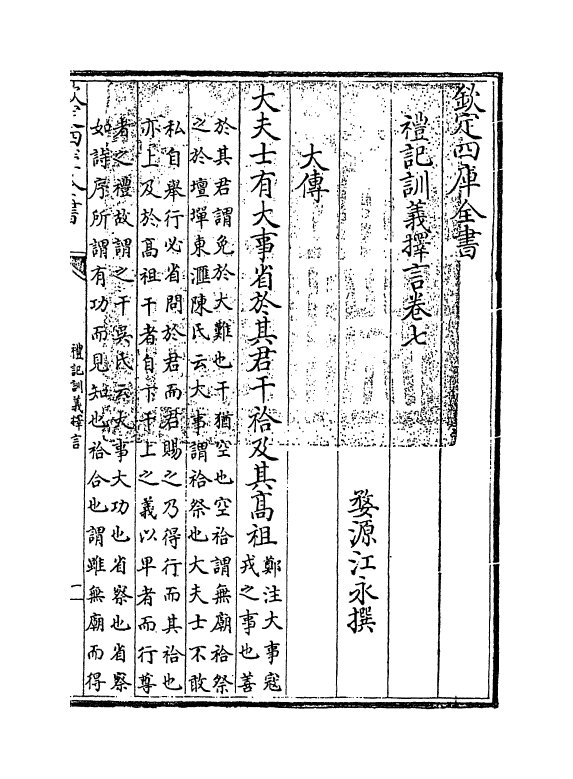 欽定四庫全書
禮記訓義擇言卷七
婺源江永撰
大傳
大夫士有大事省於其君干祫及其髙祖
鄭注大事寇
戎之事也善
於其君謂免於大難也干猶空也空祫謂無廟祫祭
之於壇墠東滙陳氏云大事謂祫祭也大夫士不敢
私自舉行必省問於君而君賜之乃得行而其祫也
亦上及於髙祖干者自下干上之義以卑者而行尊
者之禮故謂之干吳氏云大事大功也省察也省察
如詩序所謂有功而見知也祫合也謂雖無廟而得
欽定四庫全書
禮記訓義擇言
一